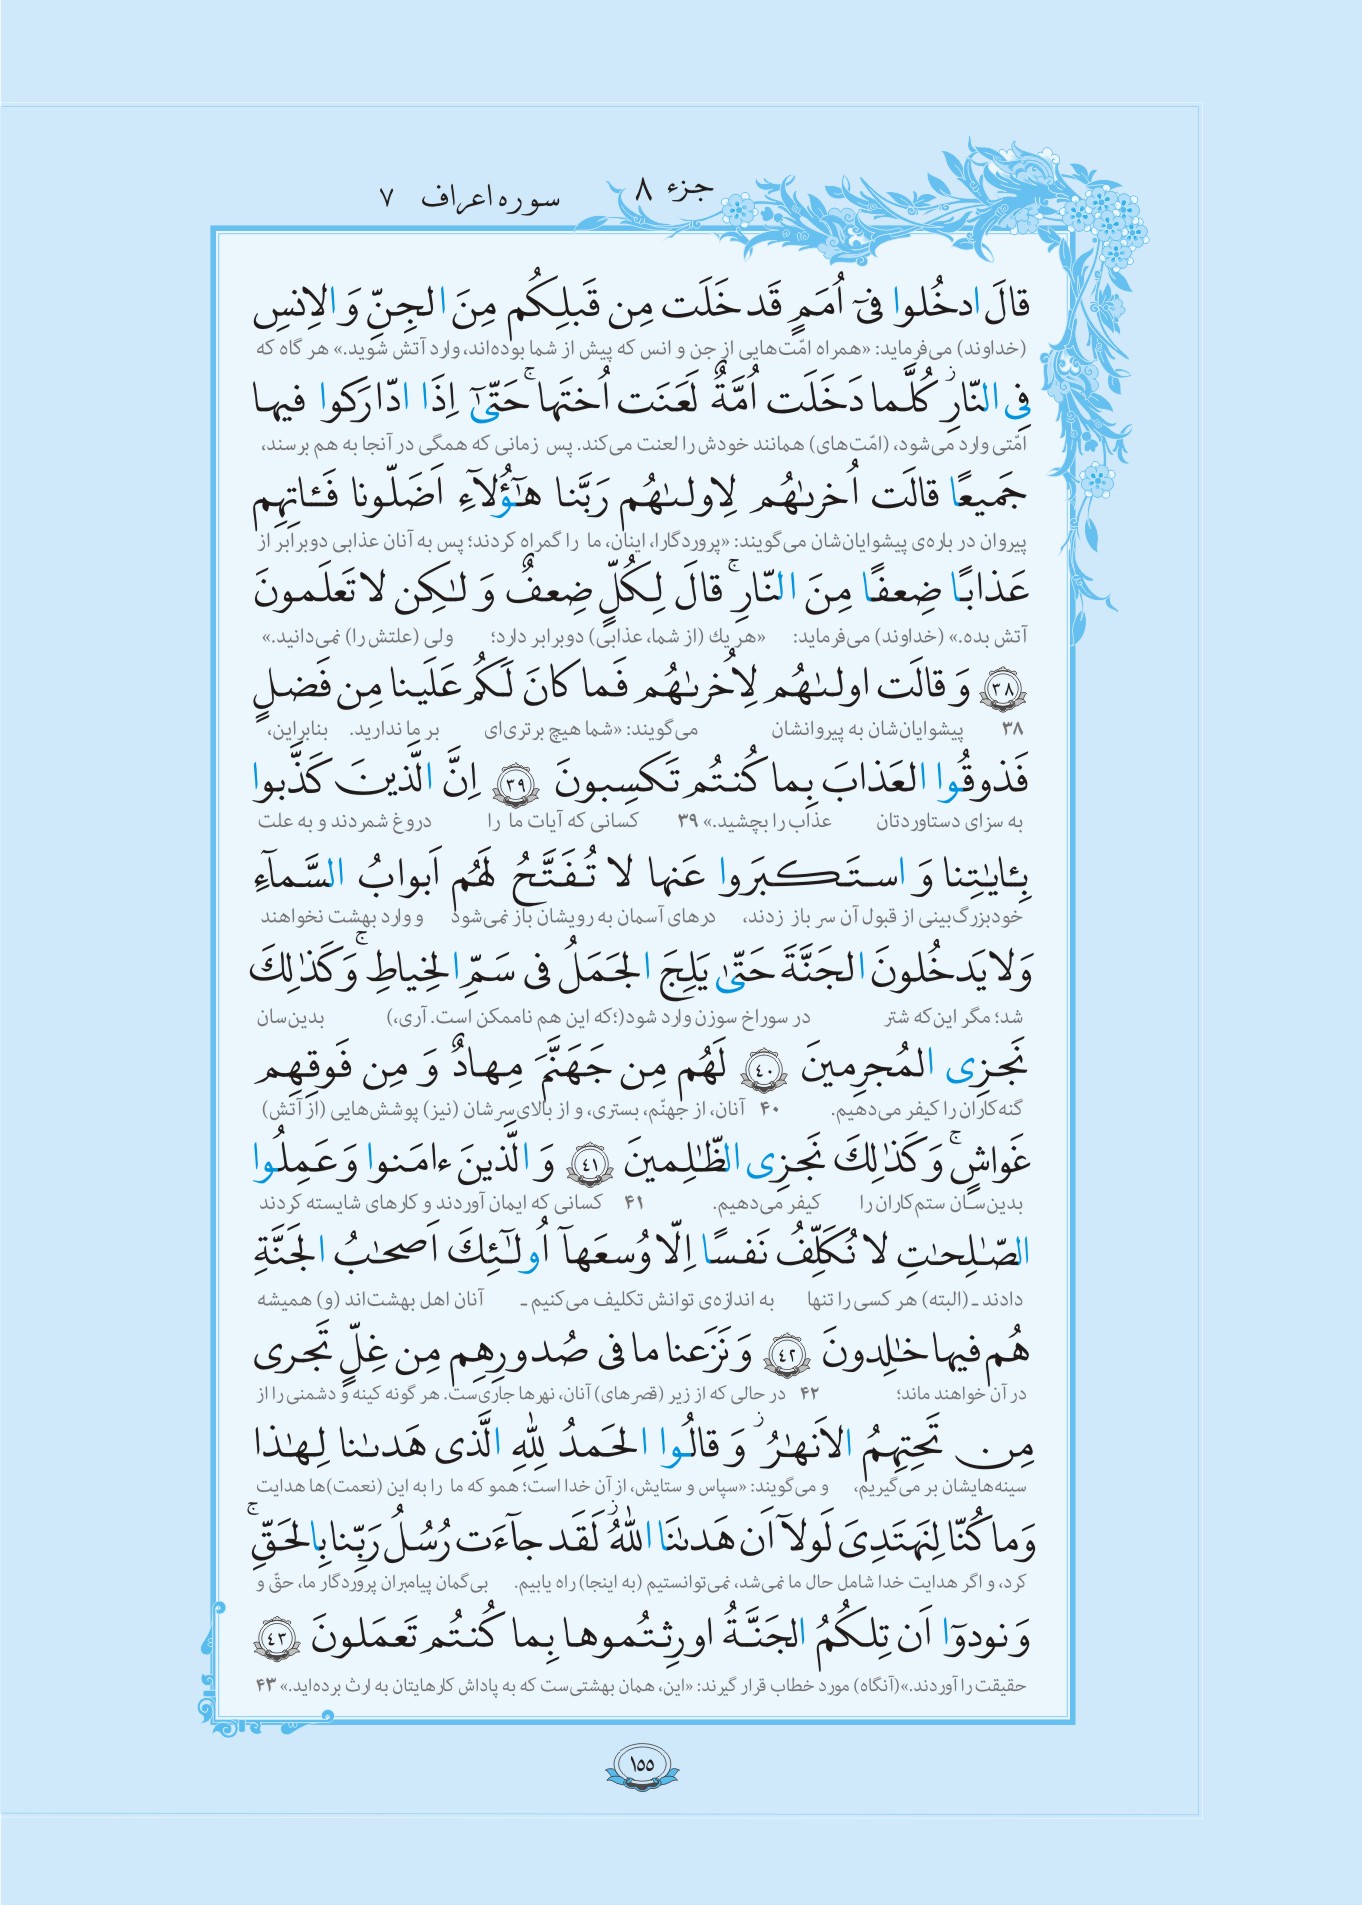 جزء ۸
سوره اعراف ۷
قالَ ادخُلوا فیٓ اُمَمٍ قَد خَلَت مِن قَبلِکُم مِنَ الجِنِّ وَ الاِنسِ
(خداوند) می‌فرماید: «همراه امّت‌هایی از جن و انس که پیش از شما بوده‌اند، وارد آتش شوید.» هر گاه که
فِی النّارِ ۖ کُلَّما دَخَلَت اُمَّةٌ لَعَنَت اُختَها ۚ حَتّیٰٓ اِذَا ادّارَکوا فیها
امّتی وارد می‌شود، (امّت‌های) همانند خودش را لعنت می‌کند. پس زمانی که همگی در آنجا به هم برسند،
جَمیعًا قالَت اُخرىٰهُم لِاولىٰهُم رَبَّنا هٰٓؤُلآءِ اَضَلّونا فَـٔاتِهِم
پیروان در باره‌ی پیشوایان‌شان می‌گویند: «پروردگارا، اینان، ما را گمراه کردند؛ پس به آنان عذابی دوبرابر از
عَذابًا ضِعفًا مِنَ النّارِ ۚ قالَ لِکُلٍّ ضِعفٌ وَ لٰکِن لا تَعلَمونَ
آتش بده.» (خداوند) می‌فرماید: «هر یك (از شما، عذابی) دوبرابر دارد؛ ولی (علتش را) نمی‌دانید.»
﴿٣٨﴾ وَ قالَت اولىٰهُم لِاُخرىٰهُم فَما کانَ لَکُم عَلَینا مِن فَضلٍ
۳۸ پیشوایان‌شان به پیروانشان می‌گویند: «شما هیچ برتری‌ای بر ما ندارید. بنابراین،
فَذوقُوا العَذابَ بِما کُنتُم تَکسِبونَ ﴿٣٩﴾ اِنَّ الَّذینَ کَذَّبوا
به سزای دستاوردتان عذاب را بچشید.» ۳۹ کسانی که آیات ما را دروغ شمردند و به علت
بِـٔایٰتِنا وَ استَکبَروا عَنها لا تُفَتَّحُ لَهُم اَبوابُ السَّمآءِ
خودبزرگ‌بینی از قبول آن سر باز زدند، درهای آسمان به رویشان باز نمی‌شود و وارد بهشت نخواهند
وَلا یَدخُلونَ الجَنَّةَ حَتّیٰ یَلِجَ الجَمَلُ فی سَمِّ الخِیاطِ ۚ وَ کَذٰلِكَ
شد؛ مگر این‌که شتر در سوراخ سوزن وارد شود(؛که این هم ناممکن است. آری،) بدین‌سان
نَجزِی المُجرِمینَ ﴿٤٠﴾ لَهُم مِن جَهَنَّمَ مِهادٌ وَ مِن فَوقِهِم
گنه‌کاران را کیفر می‌دهیم. ۴۰ آنان، از جهنّم، بستری، و از بالای‌سرشان (نیز) پوشش‌هایی (از آتش)
غَواشٍ ۚ وَ کَذٰلِكَ نَجزِی الظّٰلِمینَ ﴿٤١﴾ وَ الَّذینَ ءامَنوا وَ عَمِلُوا
بدین‌سان ستم‌کاران را کیفر می‌دهیم. ۴۱ کسانی که ایمان آوردند و کارهای شایسته کردند
الصّٰلِحٰتِ لا نُکَلِّفُ نَفسًا اِلّا وُسعَهآ اُولٰٓئِكَ اَصحٰبُ الجَنَّةِ
دادند ـ (البته) هر کسی را تنها به اندازه‌ی توانش تکلیف می‌کنیم ـ آنان اهل بهشت‌اند (و) همیشه
هُم فیها خٰلِدونَ ﴿٤٢﴾ وَ نَزَعنا ما فی صُدورِهِم مِن غِلٍّ تَجری
در آن خواهند ماند؛ ۴۲ در حالی که از زیر (قصرهای) آنان، نهرها جاری‌ست. هر گونه کینه و دشمنی را از
مِن تَحتِهِمُ الاَنهٰرُ ۖ وَ قالُوا الحَمدُ لِلّٰهِ الَّذی هَدىٰنا لِهٰذا
سینه‌هایشان بر می‌گیریم، و می‌گویند: «سپاس و ستایش، از آن خدا است؛ همو که ما را به این (نعمت)ها هدایت
وَما کُنّا لِنَهتَدِیَ لَولآ اَن هَدىٰنَا اللّٰهُ ۖ لَقَد جآءَت رُسُلُ رَبِّنا بِالحَقِّ ۚ
کرد، و اگر هدایت خدا شامل حال ما نمی‌شد، نمی‌توانستیم (به اینجا) راه یابیم. بی‌گمان پیامبران پروردگار ما، حقّ و
وَ نودوٓا اَن تِلکُمُ الجَنَّةُ اورِثتُموها بِما کُنتُم تَعمَلونَ ﴿٤٣﴾
حقیقت را آوردند.»(آنگاه) مورد خطاب قرار گیرند: «این، همان بهشتی‌ست که به پاداش کارهایتان به ارث برده‌اید.» ۴۳
۱۵۵